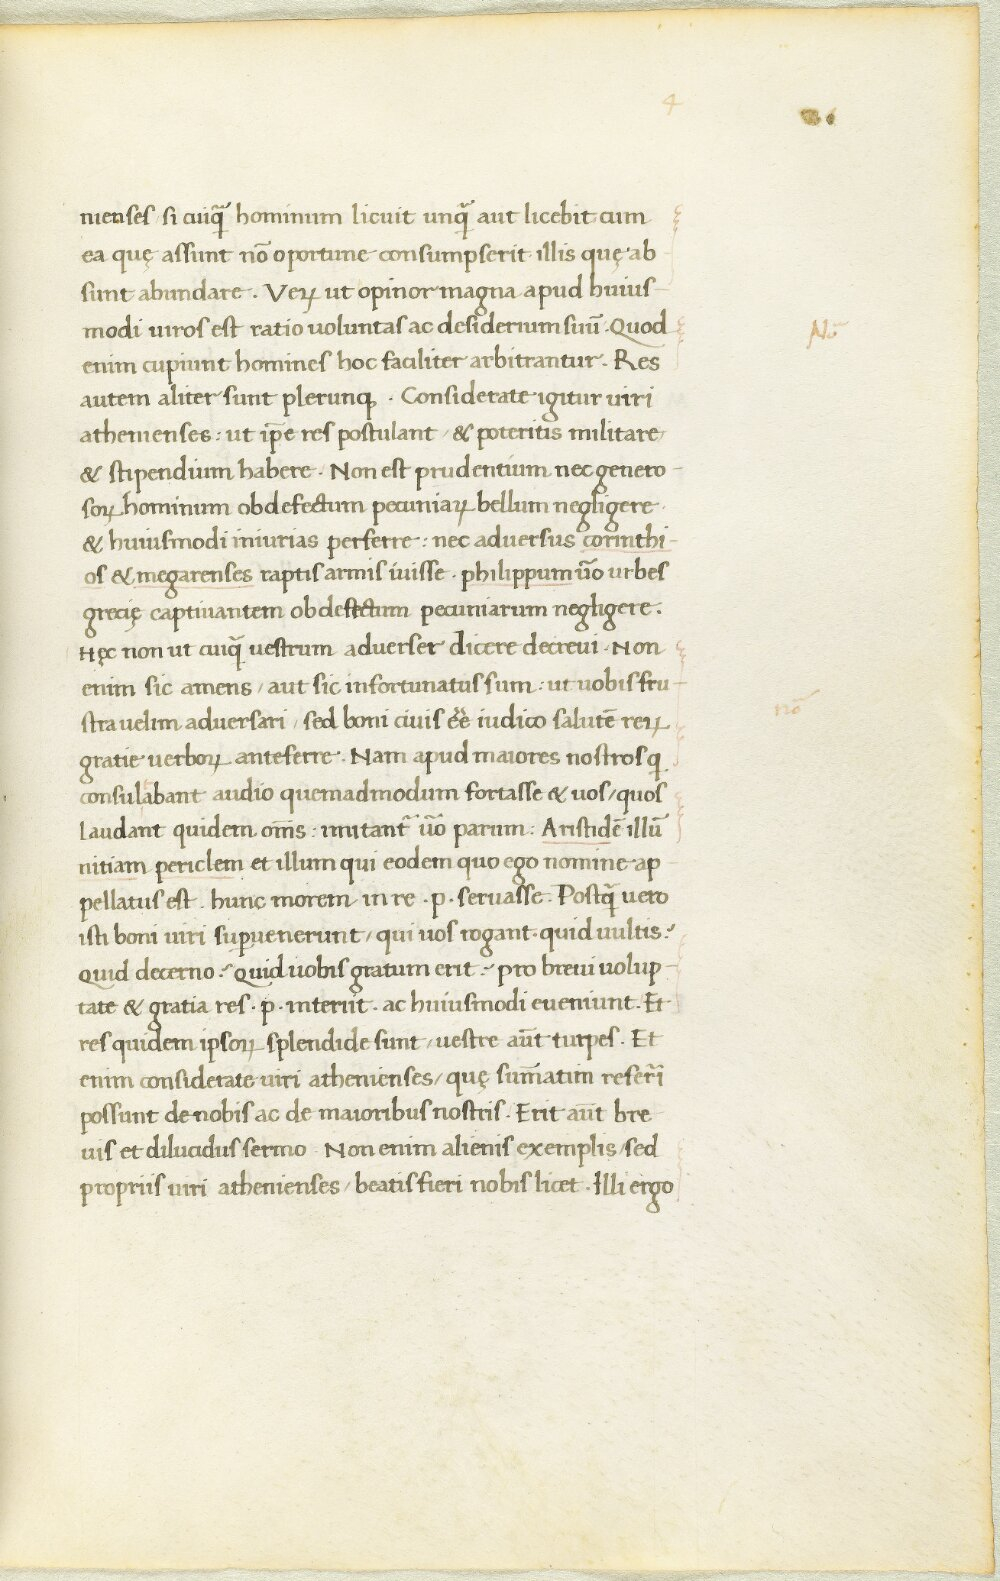 4
nienses / si cuiq̃ hominum licuit unq̃ aut licebit cum
ea quę assunt nõ oportune consumpserit illis quę ab
sunt abundare . Veꝝ ut opinor magna apud huius-
modi uiros est ratio uoluntas ac desiderium suũ . Quod
enim cupiunt homines hoc faciliter arbitrantur . Res
autem aliter sunt plerunqꝫ . Considerate igitur uiri
athenienses : ut ip̃e res postulant / & poteritis militare
& stipendium habere . Non est prudentium nec genero-
soꝝ hominum ob defectum pecuniaꝝ bellum negligere
& huiusmodi iniurias perferre : nec aduersus corinthi-
os & megarenses raptis armis iuisse . philippum ũo urbes
grecię captiuantem ob defectum pecuniarum negligere .
Hęc non ut cuiq̃ uestrum aduerser dicere decreui . Non
enim sic amens / aut sic infortunatus sum : ut uobis fru-
stra uelim aduersari / sed boni ciuis eẽ iudico salutẽ reiꝝ
gratie uerboꝝ anteferre . Nam apud maiores nostros q
consulabant audio quemadmodum fortasse & uos / quos
laudant quidem om̃s : imitant̃ ũo parum : Aristidẽ illũ
nitiam periclem et illum qui eodem quo ego nomine ap-
pellatus est . hunc morem in re . p . seruasse . Postq̃ uero
isti boni uiri superuenerunt / qui uos rogant . quid uultis ?
quid decerno ? Quid uobis gratum erit ? pro breui uolup-
tate & gratia res . p . interiit . ac huiusmodi eueniunt . Et
res quidem ipsoꝝ splendide sunt / uestre aũt turpes . Et
enim considerate uiri athenienses / quę sum̃atim referri
possunt de nobis ac de maioribus nostris . Erit aũt bre-
uis et dilucidus sermo . Non enim alienis exemplis / sed
propriis uiri athenienses / beatis fieri nobis licet . Illi ergo
Nõ
nõ